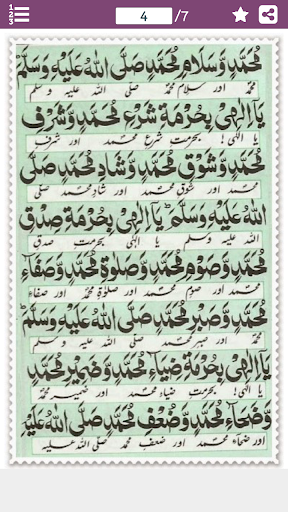 4 /7
مُحَمَّدٍ وَّسَلَامِ مُحَمَّدٍ صَلَّى اللهُ عَلَيْهِ وَسَلَّمَ
محمد اور سلام محمد صلی اللہ علیہ وسلم
يَآ اِلٰهِىْ بِحُرْمَةِ شَرْعِ مُحَمَّدٍ وَّشَرَفِ
یا الٰہی! بحرمت شرع محمد اور شرف
مُحَمَّدٍ وَّشَوْقِ مُحَمَّدٍ وَّشَادِ مُحَمَّدٍ صَلَّى
محمد اور شوق محمد اور شادِ محمد صلی
اللهُ عَلَيْهِ وَسَلَّمَ يَآ اِلٰهِىْ بِحُرْمَةِ صِدْقِ
اللہ علیہ وسلم یا الٰہی بحرمت صدق
مُحَمَّدٍ وَّصَوْمِ مُحَمَّدٍ وَّصَلٰوةِ مُحَمَّدٍ وَّصَفَآءِ
محمد اور صومِ محمد اور صلوٰۃِ محمد اور صفاءِ
مُحَمَّدٍ وَّصَبْرِ مُحَمَّدٍ صَلَّى اللهُ عَلَيْهِ وَسَلَّمَ
محمد اور صبر محمد صلی اللہ علیہ وسلم
يَآ اِلٰهِىْ بِحُرْمَةِ ضِيَآءِ مُحَمَّدٍ وَّضَمِيْرِ مُحَمَّدٍ
یا الٰہی! بحرمت ضیاءِ محمد اور ضمیر محمد
وَّضُحَآءِ مُحَمَّدٍ وَّضُعْفِ مُحَمَّدٍ صَلَّى اللهُ عَلَيْهِ
اور ضحاء محمد اور ضعفِ محمد صلی اللہ علیہ